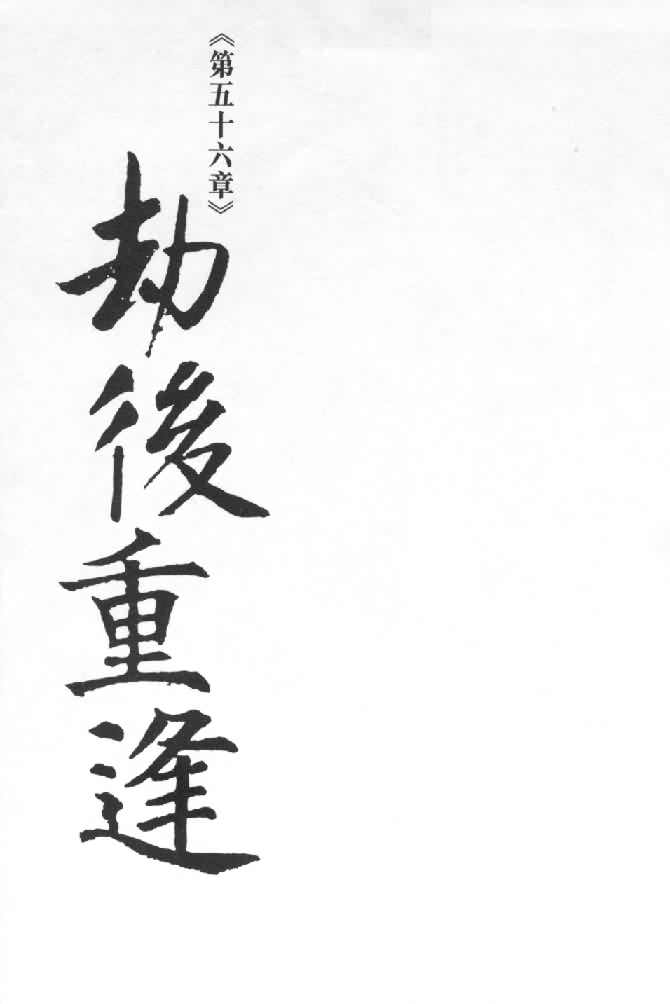 《第五十六章》
劫後重逢